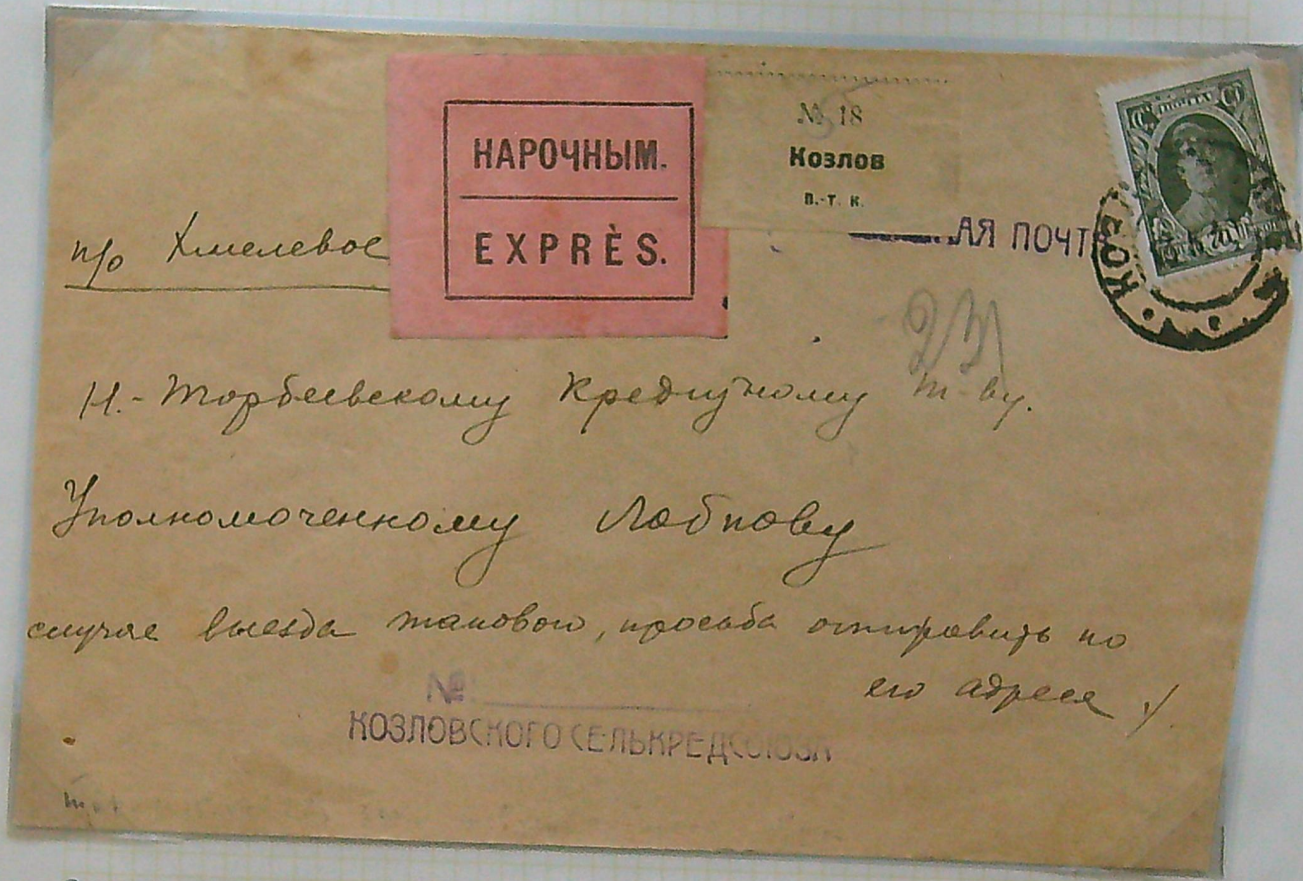 НАРОЧНЫМ.
EXPRÈS.
№ 18
Козлов
п.-т. к.
АЯ ПОЧТ
ПОЧТА
КОЗ
п/о Хмелевое
231
Н.-Торбеевскому Кредитному т-ву.
Уполномоченному
случае выезда такового, просьба отправить по
его адресе
№
КОЗЛОВСКОГО СЕЛЬКРЕДСОЮЗА